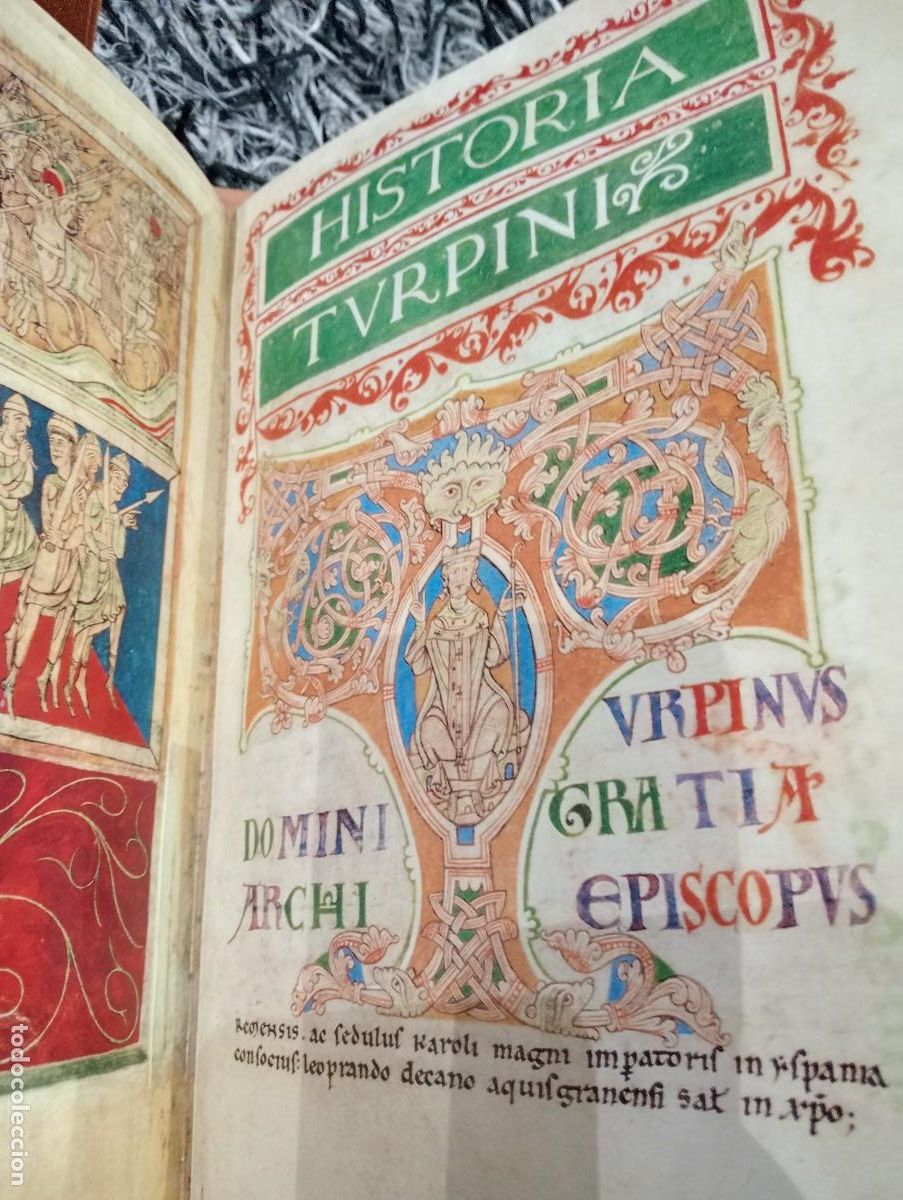 HISTORIA
TVRPINI
T
VRPINVS
DOMINI GRATIA
ARCHI EPISCOPVS
REMENSIS. ac sedulus karoli magni imꝑatoris in yspania
consocius: leoprando decano aquisgranensi Saƚ in xp̄o;
todocoleccion